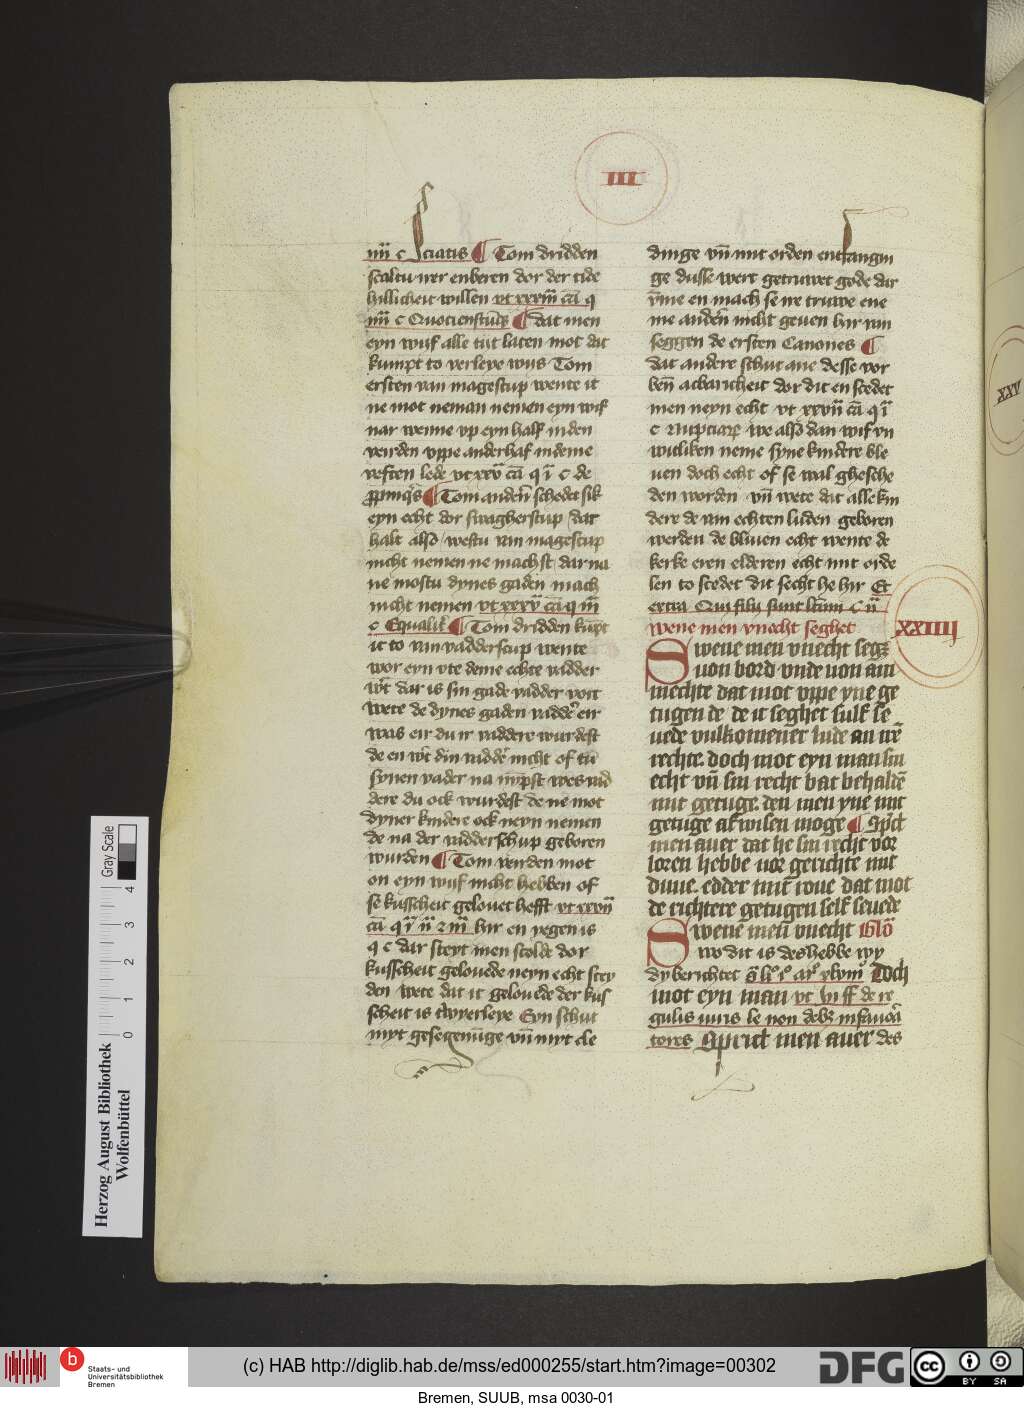 IIII
iiii c Sciatis ¶ Tom dridden
scaltu ner enberen dor der tide
hillicheit willen vt xxxiii cā q
iiii c Quociensc̄q ¶ dat men
eyn wif alle tiit laten mot dat
kumpt to verleye wiis Tom
ersten van magescup wente it
ne mot neman nemen eyn wif
nar wenne vp eyn half in den
veirden vppe anderhaf in deme
veften lede vt xxv cā q i c de
ꝓpinq̄s ¶ Tom andern̄ schedet sik
eyn echt dor swagherscup dat
halt also westu van magescup
nicht nemen ne machst dar na
ne mostu dynes gaden mach
nicht nemen vt xxxv cā q iii
c Equalit̄ ¶ Tom dridden kūpt
it to van vadderscup wente
wor eyn vte deme echte vadder
wt̄ dar is sin gade vadder vort
wete de dynes gaden vaddere eir
was eir du ir vaddere wurdest
de en wt̄ din vadder̄ nicht of tu
synen vader na
dere du ock wurdest de ne mot
dyner kindere ock neyn nemen
de na der vadderschup geboren
wurden ¶ Tom veirden mot
on eyn wijf nicht hebben of
se kusscheit gelouet hefft vt xxvii
cā q i ii z iii hir en yegen is
q c dar steyt men scolde dor
kusscheit gelouede neyn echt scey
den wete dat it gelouede der kus
scheit is twyerleye Eyn schut
myt gesegeninge vn̄ myt cle
dinge vn̄ mit orden entfangin
ge dusse wert getruwet gode dar
v̄me en mach se ne truwe ene
me anderen nicht geuen hir van
seggen de ersten Canones ¶
dat andere schut ane desse vor
ben̄ acbaricheit dor dit en scedet
men neyn echt vt xxvii cā q i
c Nupciarꝝ we also dan wif vn
witliken neme syne kindere ble
uen doch echt of se wal ghesche
den worden vn̄ wete dat alle kin
dere de van echten luden geboren
werden de bliuen echt wente de
kerke eren elderen echt mit orde
len to scedet dit secht he hir Et
extra Qui filij sunt l̄tim c ii
wene men vnecht seghet
XXIIIJ
Swene men vnecht segz
uon bord vnde uon am
mechte dat mot vppe yne ge
tugen de de it seghet sulf se
uede vulkomener lude an ire
rechte. doch mot eyn man sin
echt vn̄ sin recht bat behaldē
mit getuge. den men yne mit
getuge afwisen moge ¶ Sp̄ct
men auer dat he sin recht vor
loren hebbe uor gerichte mit
duue. edder mit roue dat mot
de richtere getugen self seuede
Swene men vnecht Glo
wo dit is des hebbe wy
dy berichtet Doch
mot eyn man vt in ff de re
gulis iuris le non debz
tores Sprict men auer des
XXV
Herzog August Bibliothek
Wolfenbüttel
Gray Scale
0 1 2 3 4
Staats- und
Universitätsbibliothek
Bremen
(c) HAB http://diglib.hab.de/mss/ed000255/start.htm?image=00302
DFG
cc BY SA
Bremen, SUUB, msa 0030-01